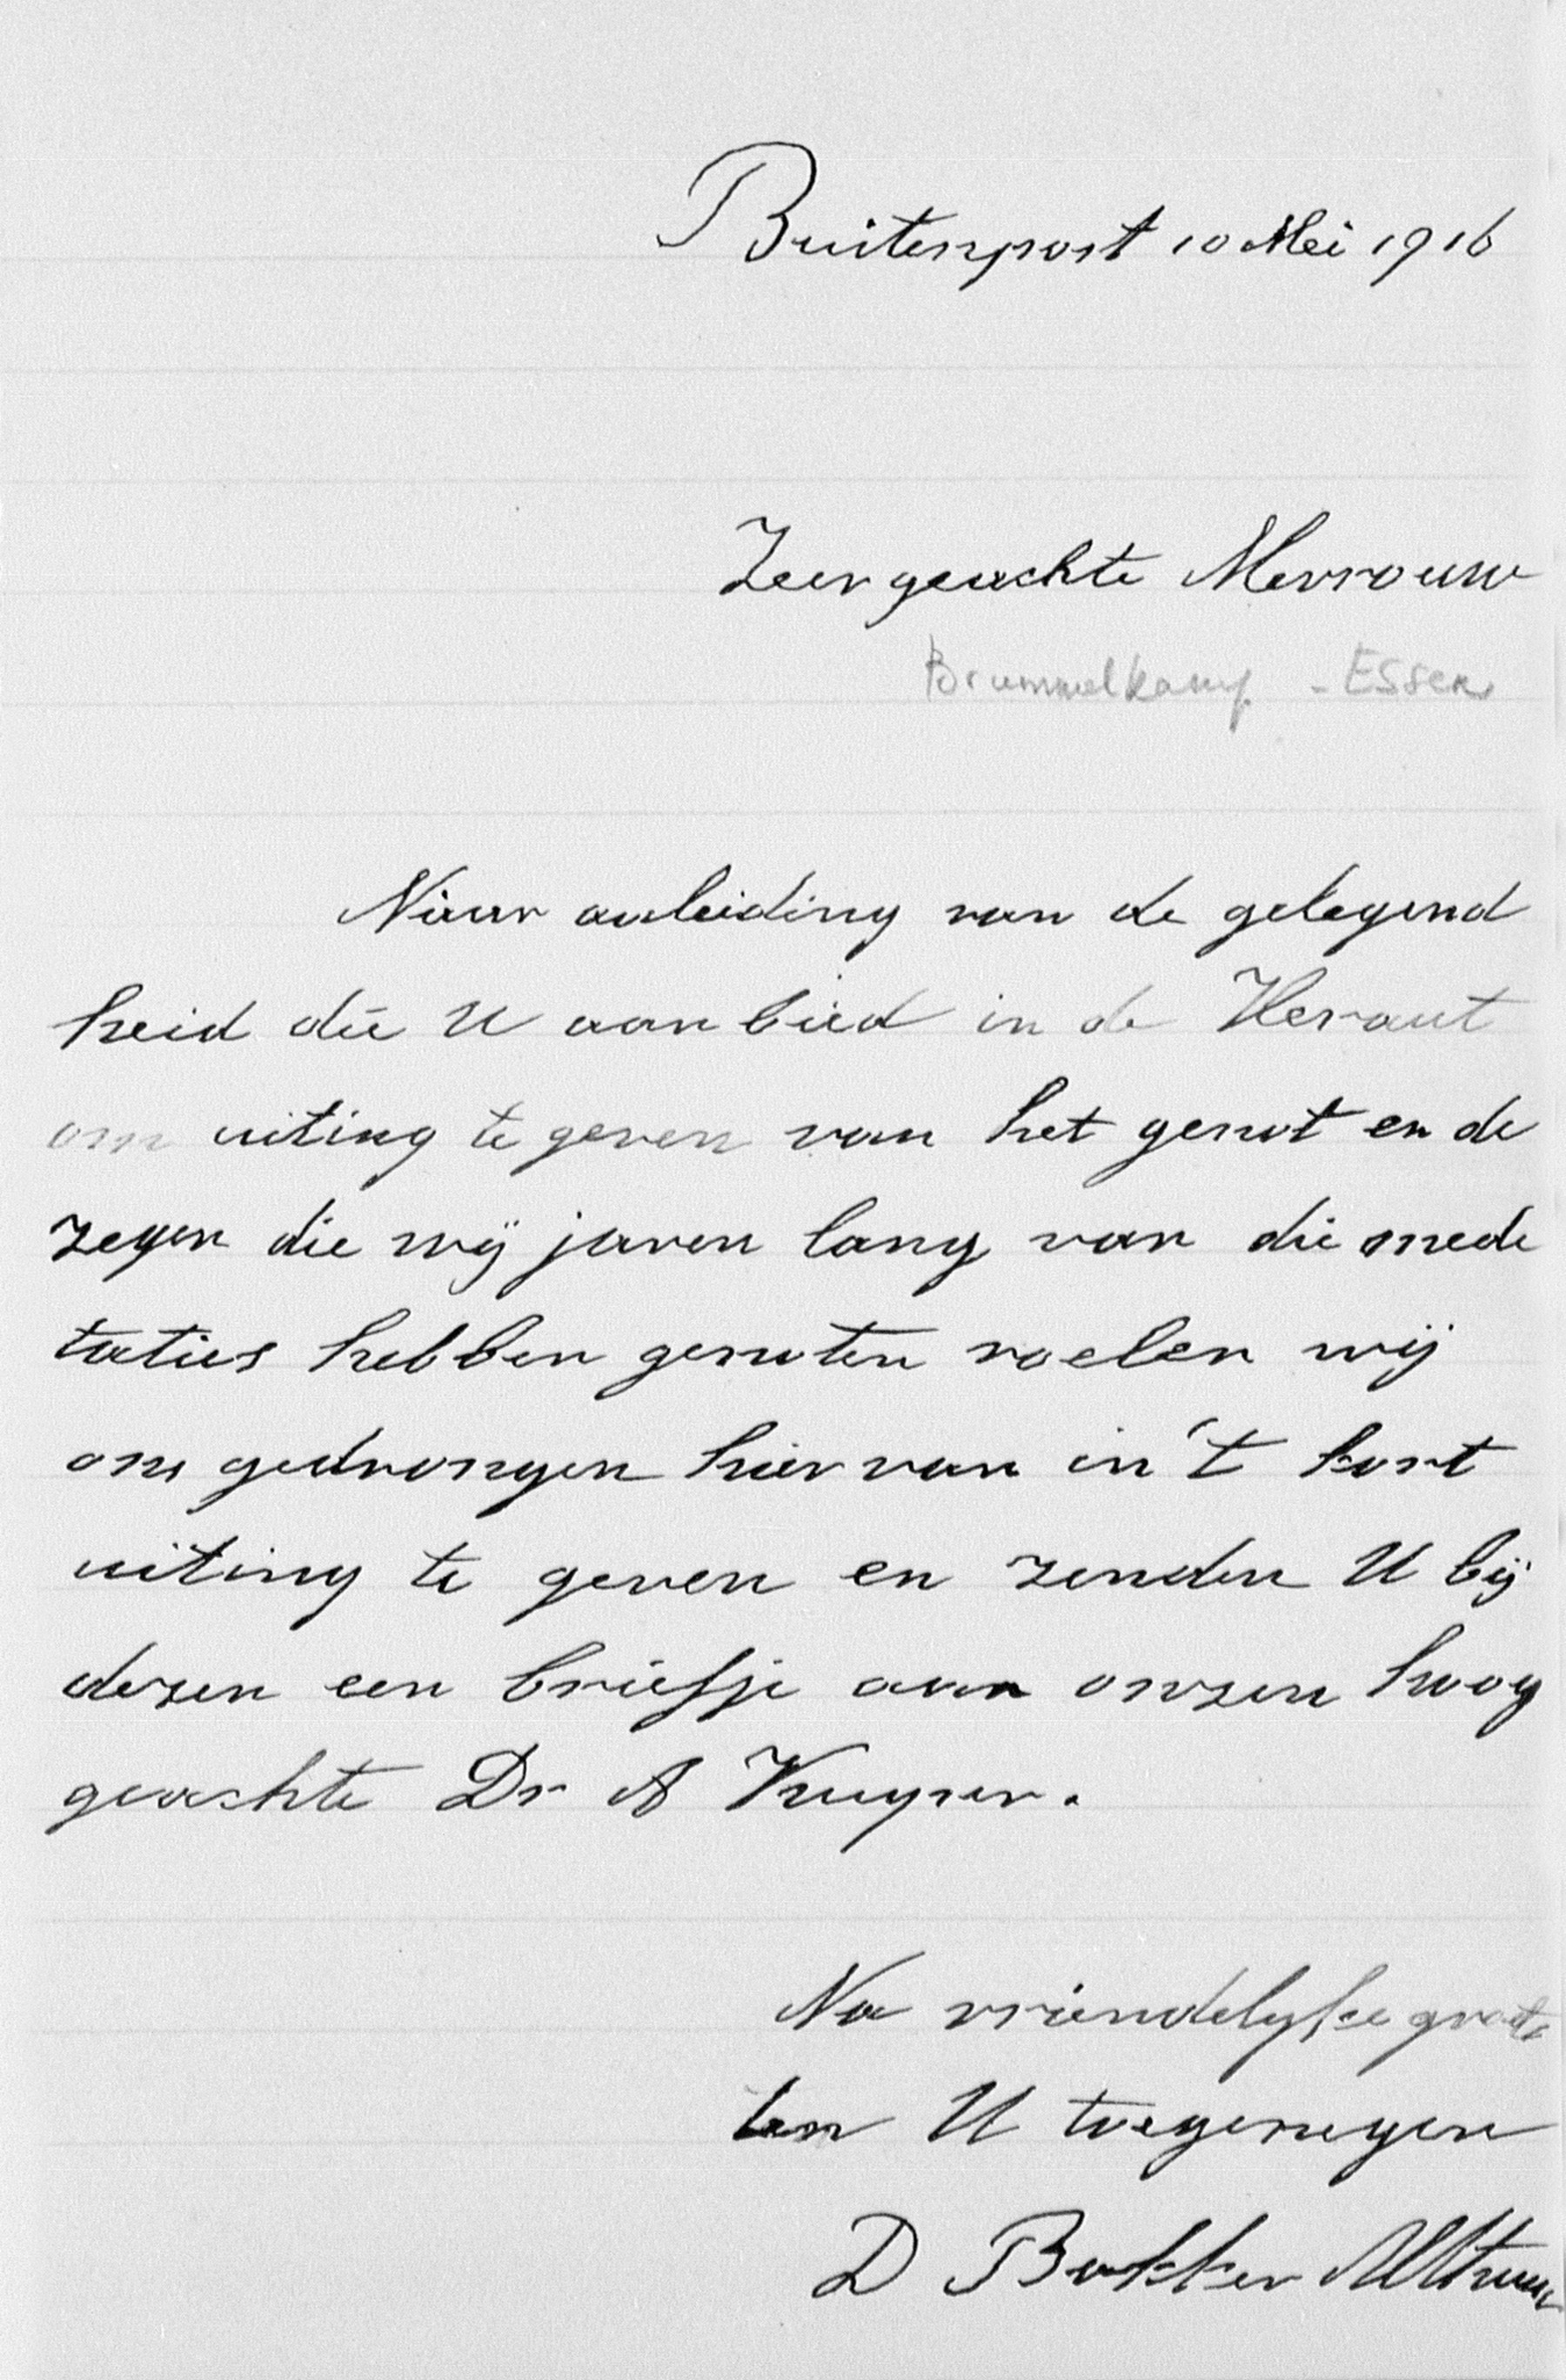 Buitenpost 10 Mei 1916
Zeer geachte Mevrouw
Brummelkamp - Essen
Naar aaleiding van de gelegend
heid die U aanbied in de Heraut
om uiting te geven van het genot en de
zegen die wij jaren lang van die mede
taties hebben genoten voelen wij
ons gedrongen hier van in 't kort
uiting te geven en zenden U bij
dezen een briefje aan onzen hoog
geachte Dr A Kuyper.
Na vriendelyke groet
ten U toegenegen
D Bakker